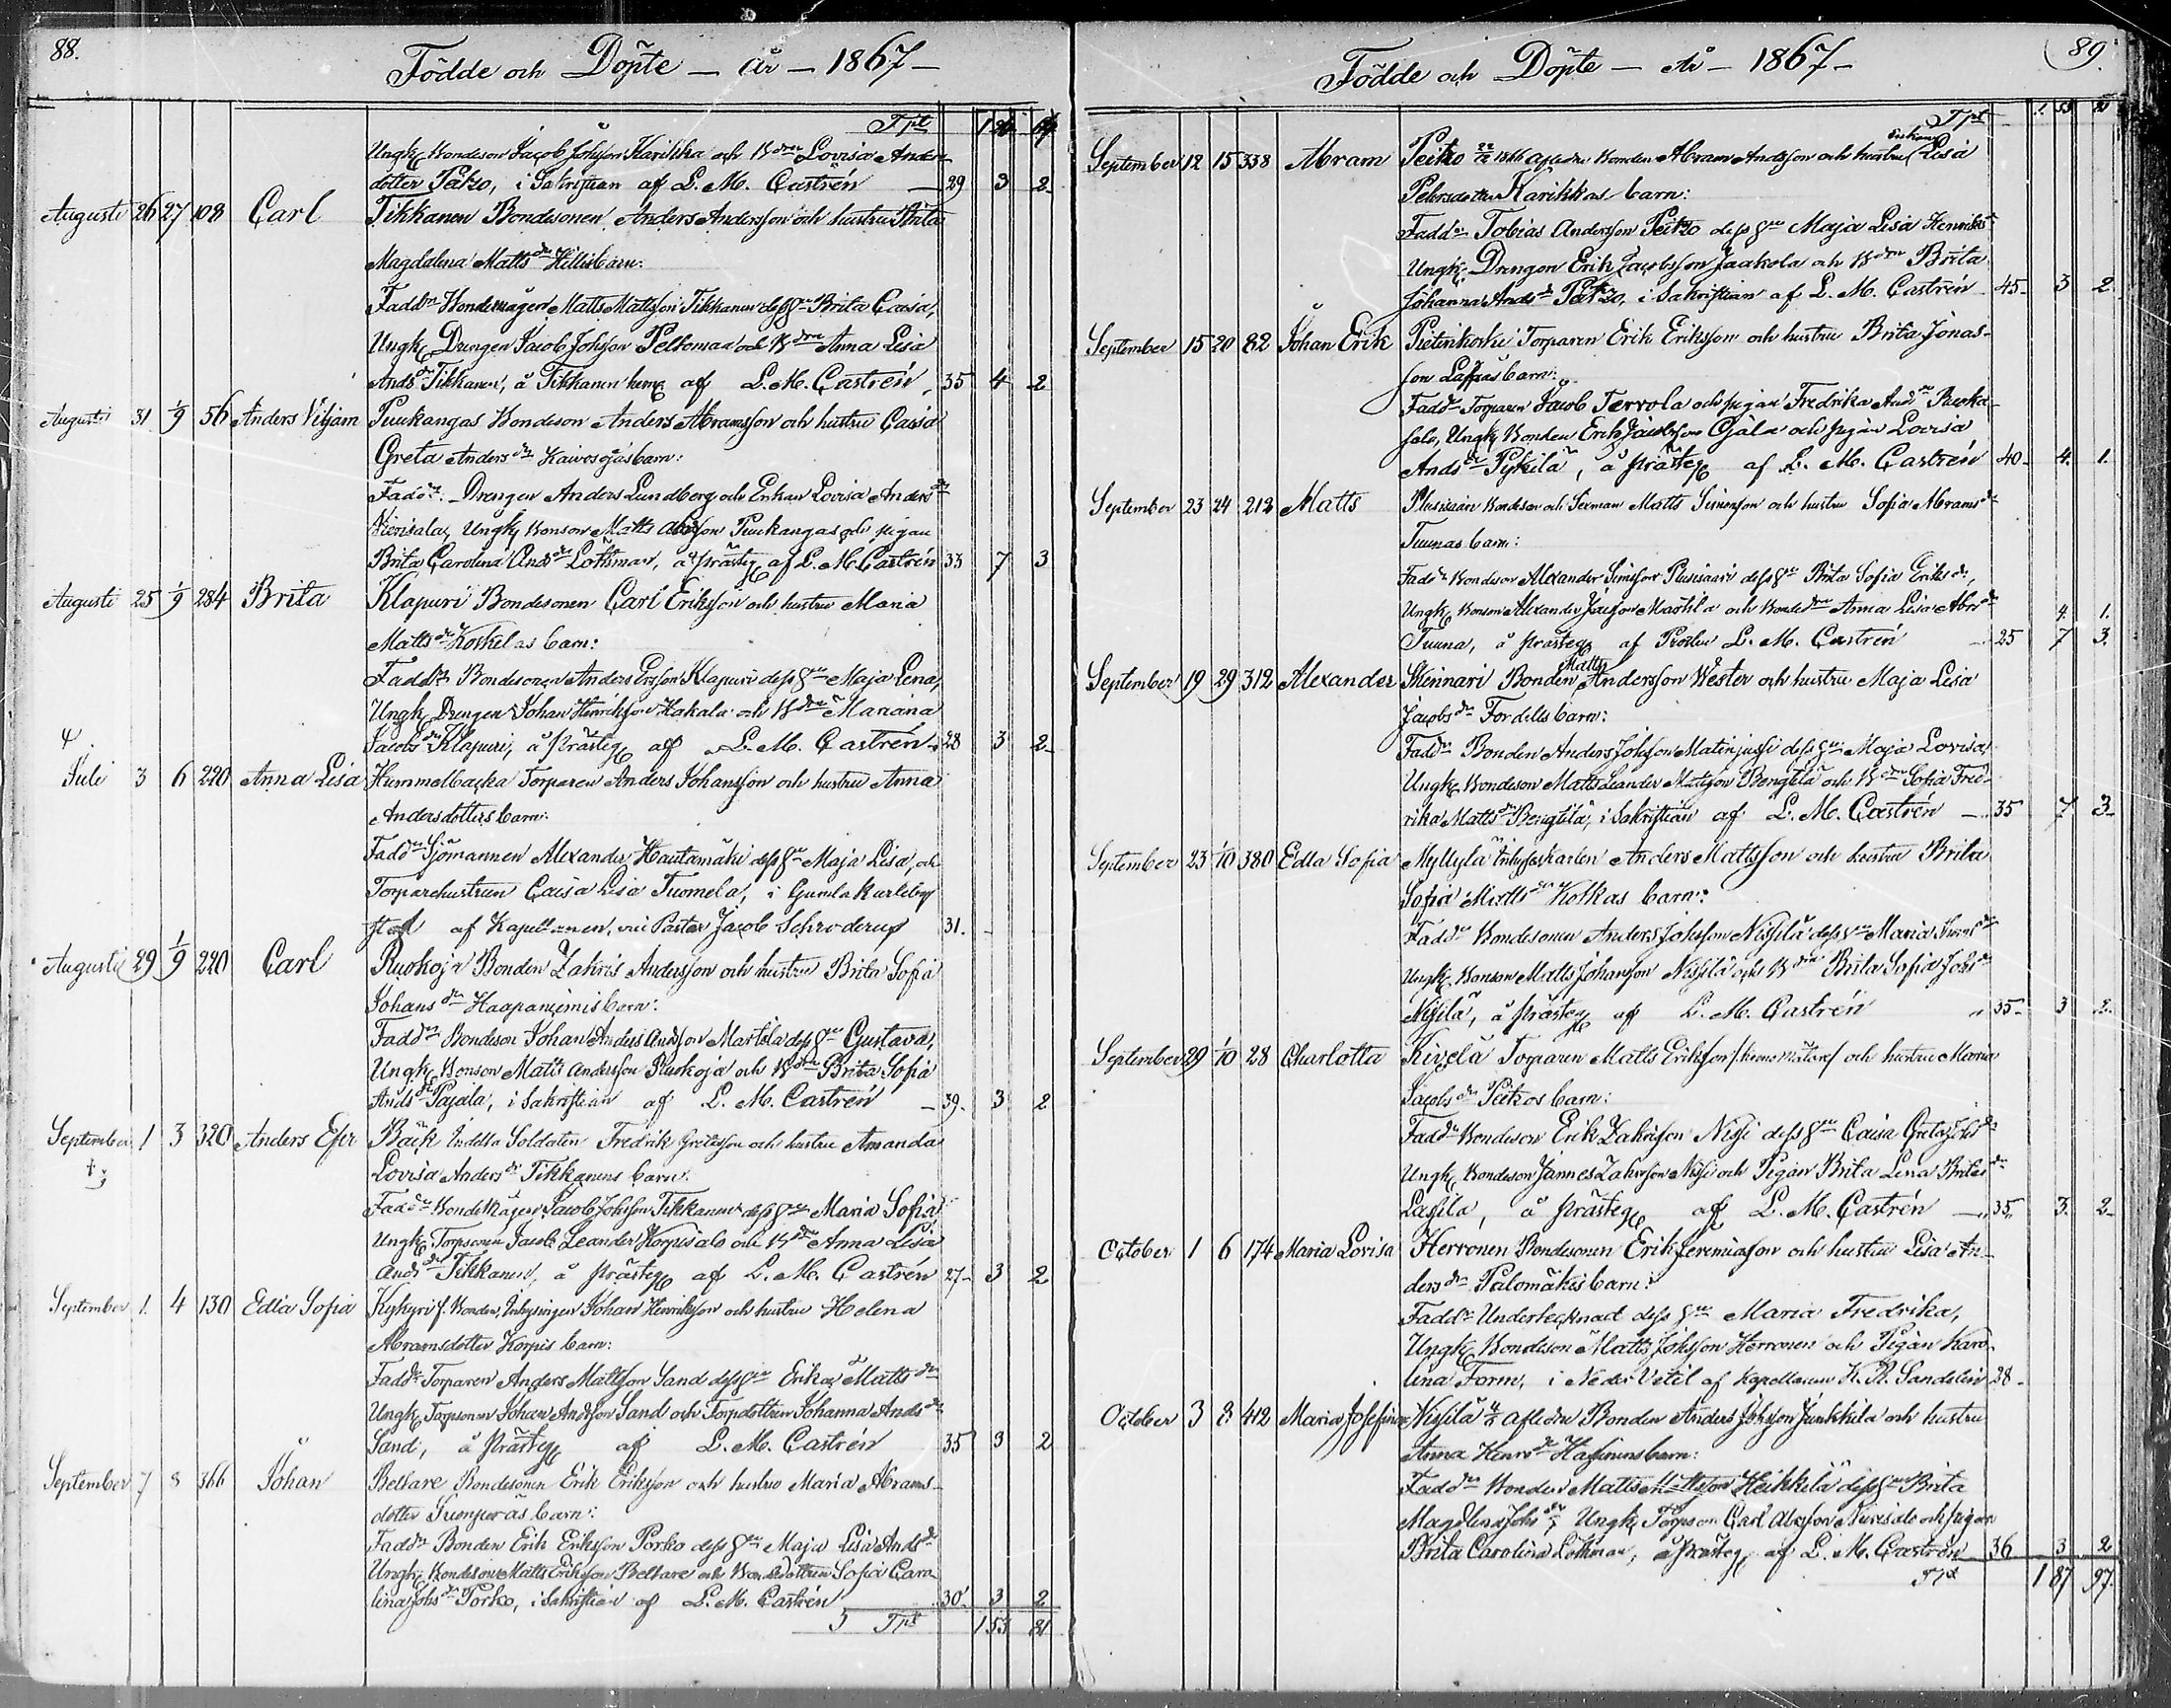 88.
Födde och Döpte – år – 1867 –
Tpt 1
Ungk. Bondeson Jacob Johsson Karikka och Bdrn Lovisa Anders-
dotter Päko, i Sakristian af L. M. Castrén – 29 3 2
Augusti 26 27 108 Carl Tikkanen Bondesonen Anders Andersson och hustru Brita
Magdalena Matts dr Hillis barn:
Faddr Bondemågen Matts Mattsson Tikkanen dess hu Brita Caisa,
Ungk. Drengen Jacob Johsson Peltomaa och Bdrn Anna Lisa
Ands dr Tikkanen, å Tikkanen hem af L. M. Castrén 35 4 2
Augusti 31 1/9 56 Anders Viljam Puukangas Bondeson Anders Abramsson och hustru Caisa
Greta Anders dr Kaivosojas barn:
Faddr Drengen Anders Lundberg och Enkan Lovisa Anders dr
Nierisala, Ungk. Bonson Matts Abrsson Puukangas och pigan
Brita Carolina Ands dr Lothman, å prästeg af L. M. Castrén 33 7 3
Augusti 25 1/9 284 Brita Klapuri Bondesonen Carl Eriksson och hustru Maria
Matts dr Koskelas barn:
Faddr Bondesonen Anders Ersson Klapuri dess hu Maja Lena,
Ungk. Drengen Johan Henriksson Kakala och Bdrn Mariana
Jacobs dr Klapuri, å prästeg af L. M. Castrén 28 3 2
Juli 3 6 220 Anna Lisa Hummelbacka Torparen Anders Johansson och hustru Anna
Andersdotters barn:
Faddr Sjömannen Alexander Hautamäki dess hu Maja Lisa, och
Torparehustrun Caisa Lisa Tuomela, i Gamlakarleby
stad af Kapellanen, vice Pastor Jacob Schroderus 31.
Augusti 29 1/9 220 Carl Ruokoja Bonden Zakris Andersson och hustru Brita Sofia
Johans dr Haapaniemis barn:
Faddr Bondeson Johan Anders Andsson Martila dess hu Gustava,
Ungk. Bonson Matts Andersson Ruokoja och Bdrn Brita Sofia
Ands dr Pajala, i Sakristian af L. M. Castrén – 39. 3 2
September 1 3 320 Anders Efr Bäck Indelta Soldaten Fredrik Gretasson och hustru Amanda
Lovisa Anders dr Tikkanens barn:
Faddr Bondemågen Jacob Johsson Tikkanen dess hu Maria Sofia
Ungk. Torpsonen Jacob Leander Korpisalo och Bdrn Anna Lisa
Ands dr Tikkanen, å prästeg af L. M. Castrén 27 – 3 2
September 1. 4 130 Edla Sofia Kykyri f. Bonden, Inhysingen Johan Henriksson och hustru Helena
Abramsdotter Korpis barn:
Faddr Torparen Anders Mattsson Sand dess hu Erika Matts dr
Ungk. Torpsonen Johan Andsson Sand och Torpdottren Johanna Ands dr
Sand, å prästeg af L. M. Castrén 35 3 2
September 7 8 366 Johan Beltare Bondesonen Erik Eriksson och hustru Maria Abrams-
dotter Tuonperäs barn:
Faddr Bonden Erik Eriksson Porko dess hu Maja Lisa Ands dr
Ungk. Bondeson Matts Eriksson Beltare och Bondedottren Sofia Caro-
lina Johs dr Porko, i Sakristian af L. M. Castrén 30. 3 2
Tpt 1 53 81
89.
Födde och Döpte – År – 1867 –
Tpt 1. 53 81
September 12 15 338 Abram Peitzo 22/12 1866 afledne Bonden Abram Andersson och hustru Enkan Lisa
Petersdotter Karikkas barn:
Faddr Tobias Andersson Peitzo dess hu Maja Lisa Henriks dr
Ungk. Drengen Erik Jacobsson Jaakola och Bdrn Brita
Johanna Ands dr Päkzo, i Sakristian af L. M. Castrén 45. 3 2
September 15 20 82 Johan Erik Pietinkoski Torparen Erik Eriksson och hustru Brita Jonas-
son Lappas barn:
Faddr Torparen Jacob Terrola och pigan Fredrika And dr Ruoka-
salo, Ungk. Bonden Erik Jacobsson Ojala och pigan Lovisa
Ands dr Pykilä, å prästeg af L. M. Castrén 40. 4. 1.
September 23 24 212 Matts Plusisaari Bondeson och Sexman Matts Simonsson och hustru Sofia Abrams dr
Tuunas barn:
Faddr Bondeson Alexander Simsson Plusisaari dess hu Brita Sofia Eriks dr,
Ungk. Bonson Alexander Jacsson Mattila och Bondedrn Anna Lisa Abrs dr 4. 1.
Tuuna, å prästeg af Prosten L. M. Castrén 25 7 3.
September 19 29 312 Alexander Skinnari Bonden Matts Andersson Wester och hustru Maja Lisa
Jacobs dr Fordells barn:
Faddr Bonden Anders Johsson Matinjussi dess hu Maja Lovisa
Ungk. Bondeson Matts Leander Mattsson Bengtila och Bdrn Sofia Fred-
rika Matts dr Bengtila, i Sakristian af L. M. Castrén – 35 7 3
September 23 1/10 380 Edla Sofia Myllylä Inhyseskarlen Anders Mattsson och hustru Brita
Sofia Matts dr Kotkas barn:
Faddr Bondesonen Anders Johsson Nissilä dess hu Maria
Ungk. Bonson Matts Johansson Nissilä och Bdrn Brita Sofia Johs dr
Nissilä, å prästeg af L. M. Castrén 35. 3 2.
September 29 1/10 28 Charlotta Kivelä Torparen Matts Eriksson och hustru Maria
Jacobs dr Päkos barn:
Faddr Bondeson Erik Zakrisson Nissi dess hu Caisa Greta Johs dr
Ungk. Bondeson Jannes Zakrisson Nissi och Pigan Brita Lena Britas dr
Lassila, å prästeg af L. M. Castrén – 35. 3. 2
October 1 6 174 Maria Lovisa Herronen Bondesonen Erik Jeremiasson och hustru Lisa An-
ders dr Palomäkis barn:
Faddr Undertecknad dess hu Maria Fredrika,
Ungk. Bondeson Matts Johsson Herronen och Pigan Karo-
lina Form, i Neder Vetil af Kapellanen K. R. Sandelin 28.
October 3 8. 412 Maria Josefina Nissilä aflidne Bonden Anders Johsson Junkkila och hustru
Anna Henrs dr Hassinens barn:
Faddr Bonden Matts Mattsson Heikkilä dess hu Brita
Magdlena Johs dr, Ungk. Torpson Carl Abrsson Nierisalo och pigan
Brita Carolina Lothman, å prästeg af L. M. Castrén 36 3 2
Tpt 1 87 97.